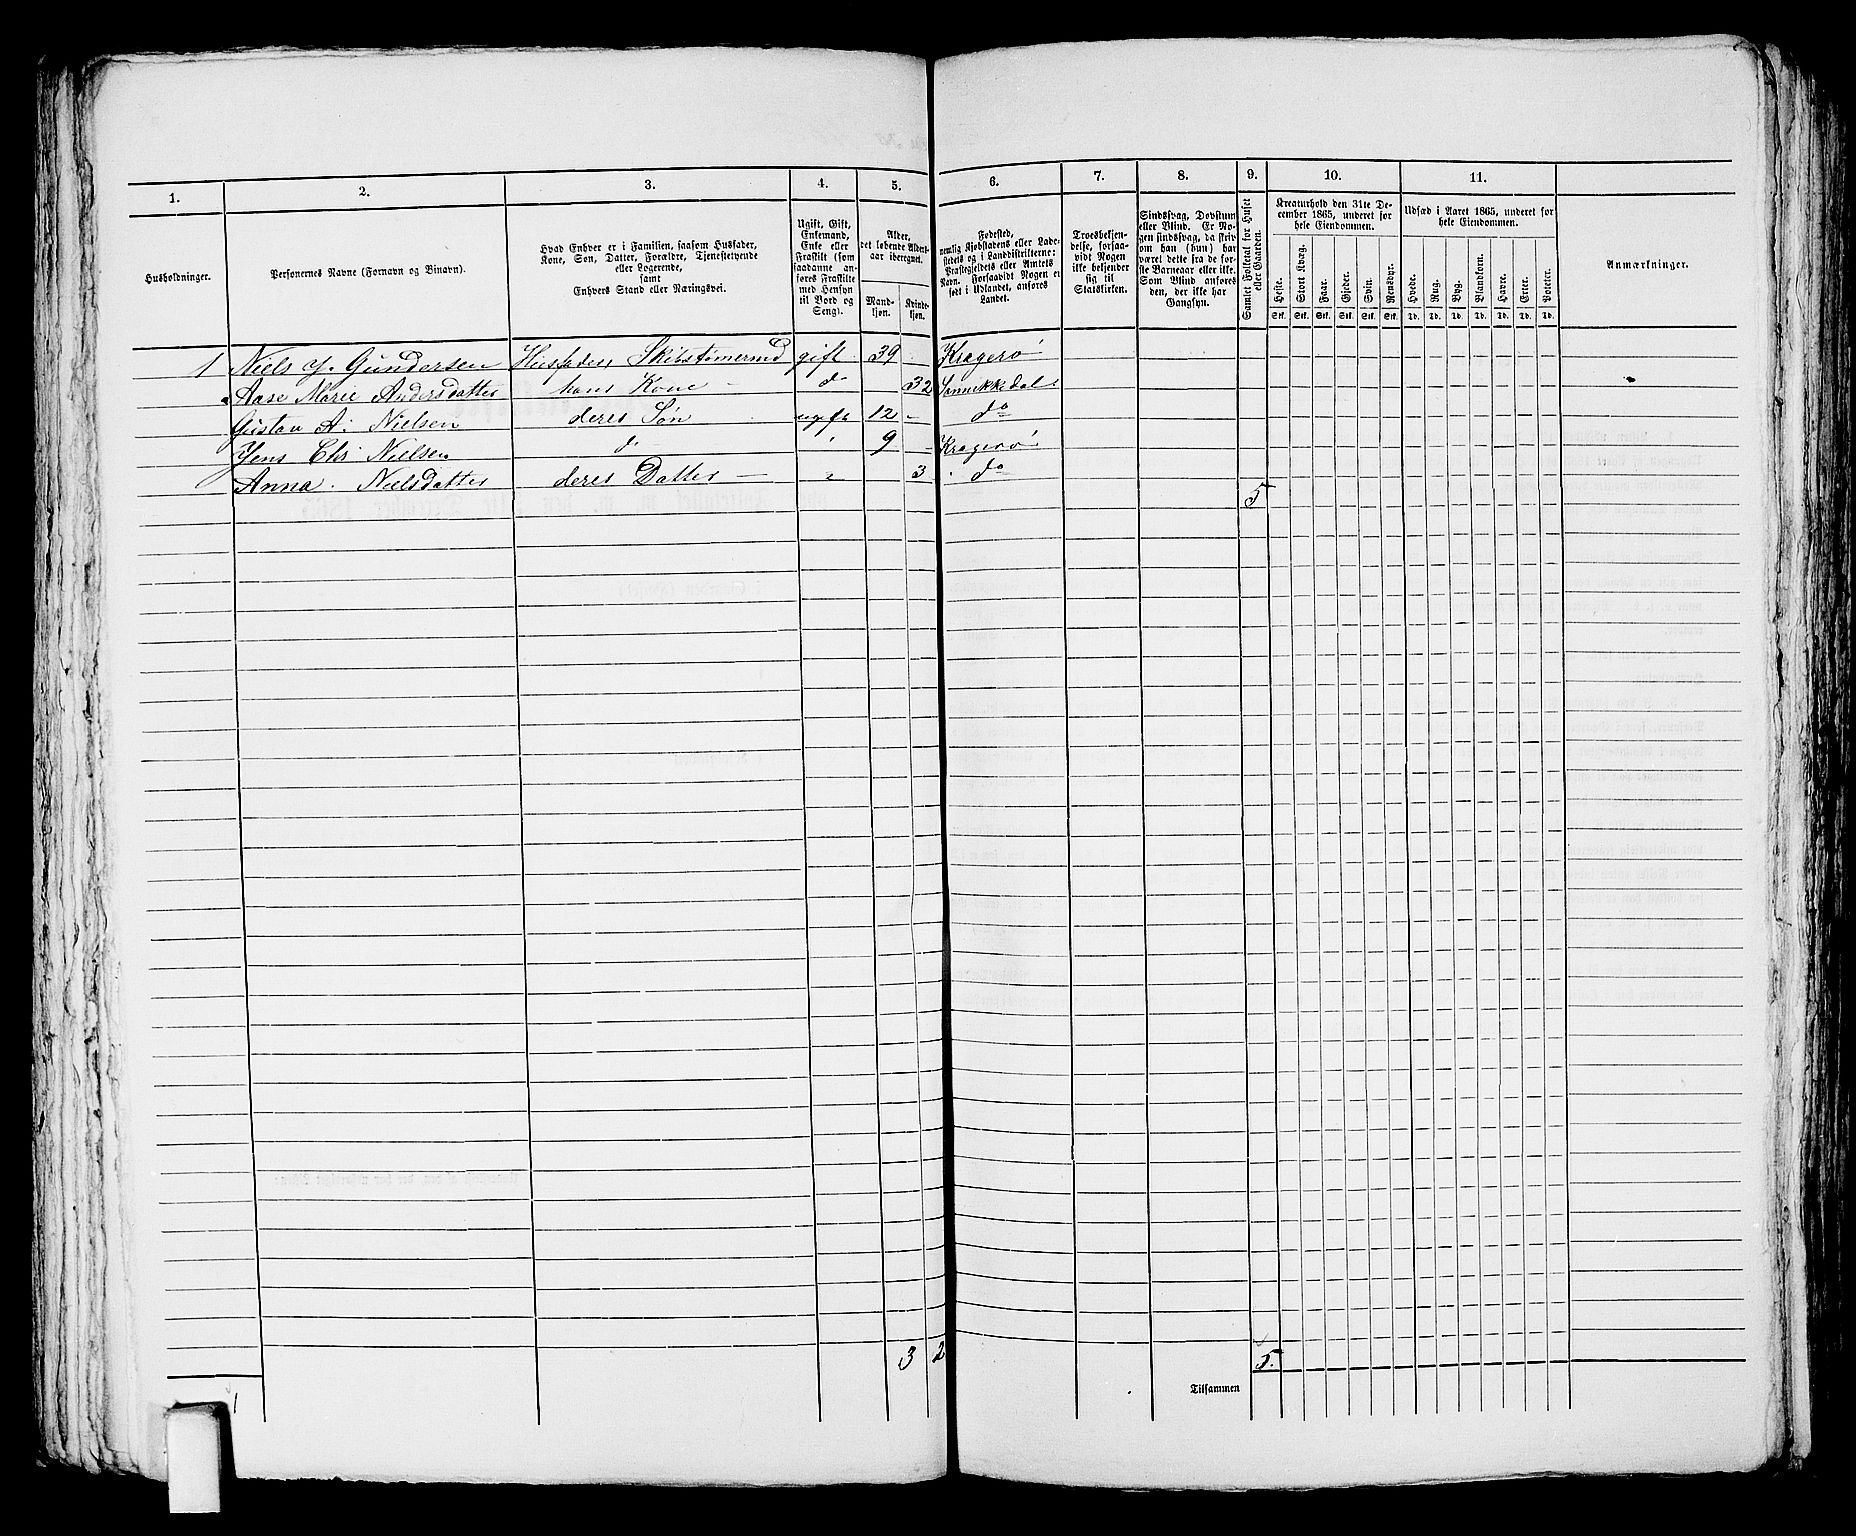 1. 2. 3. 4. 5. 6. 7. 8. 9. 10. 11.
Husholdninger.
Personernes Navne (Fornavn og Binavn).
Hvad Enhver er i Familien, saasom Husfader,
Kone, Søn, Datter, Forældre, Tjenestetyende
eller Logerende,
samt
Enhvers Stand eller Næringsvei.
Ugift, Gift,
Enkemand,
Enke eller
Fraskilt (som
saadanne an-
føres Fraskilte
med Hensyn
til Bord og
Seng).
Alder,
det løbende Alders-
aar iberegnet.
Mand-
kjøn.
Kvinde-
kjøn.
Fødested,
nemlig Kjøbstadens eller Lade-
stedets og i Landdistrikterne:
Præstegjeldets eller Amtets
Navn. Forsaavidt Nogen er
født i Udlandet, anføres
Landet.
Troesbekjen-
delse, forsaa-
vidt Nogen
ikke bekjender
sig til
Statskirken.
Sindssvag, Døvstum
eller Blind. Er No-
gen sindssvag, da skriv
om han (hun) har
været dette fra de før-
ste Barneaar eller ikke.
Som Blind anføres
den, der ikke har
Gangsyn.
Samlet Folketal for Huset
eller Gaarden.
Kreaturhold den 31te De-
cember 1865, underet for
hele Eiendommen.
Heste. Stort Kvæg. Faar. Gjeder. Svin. Rensdyr.
Stk. Stk. Stk. Stk. Stk. Stk.
Udsæd i Aaret 1865, underet for
hele Eiendommen.
Hvede. Rug. Byg. Blandkorn. Havre. Erter. Poteter.
Td. Td. Td. Td. Td. Td. Td.
Anmærkninger.
1 Niels Gundersen Husfader, Skibstømermd gift 39 Kragerø
Aase Marie Andersdatter hans Kone do 32 Sannikkedal
Gustav A. Nielsen deres Søn ugift 12 do
Jens Chr Nielsen d 9 Kragerø
Anna Nielsdatter deres Datter 3 do
5
3 2 5.
Tilsammen
1